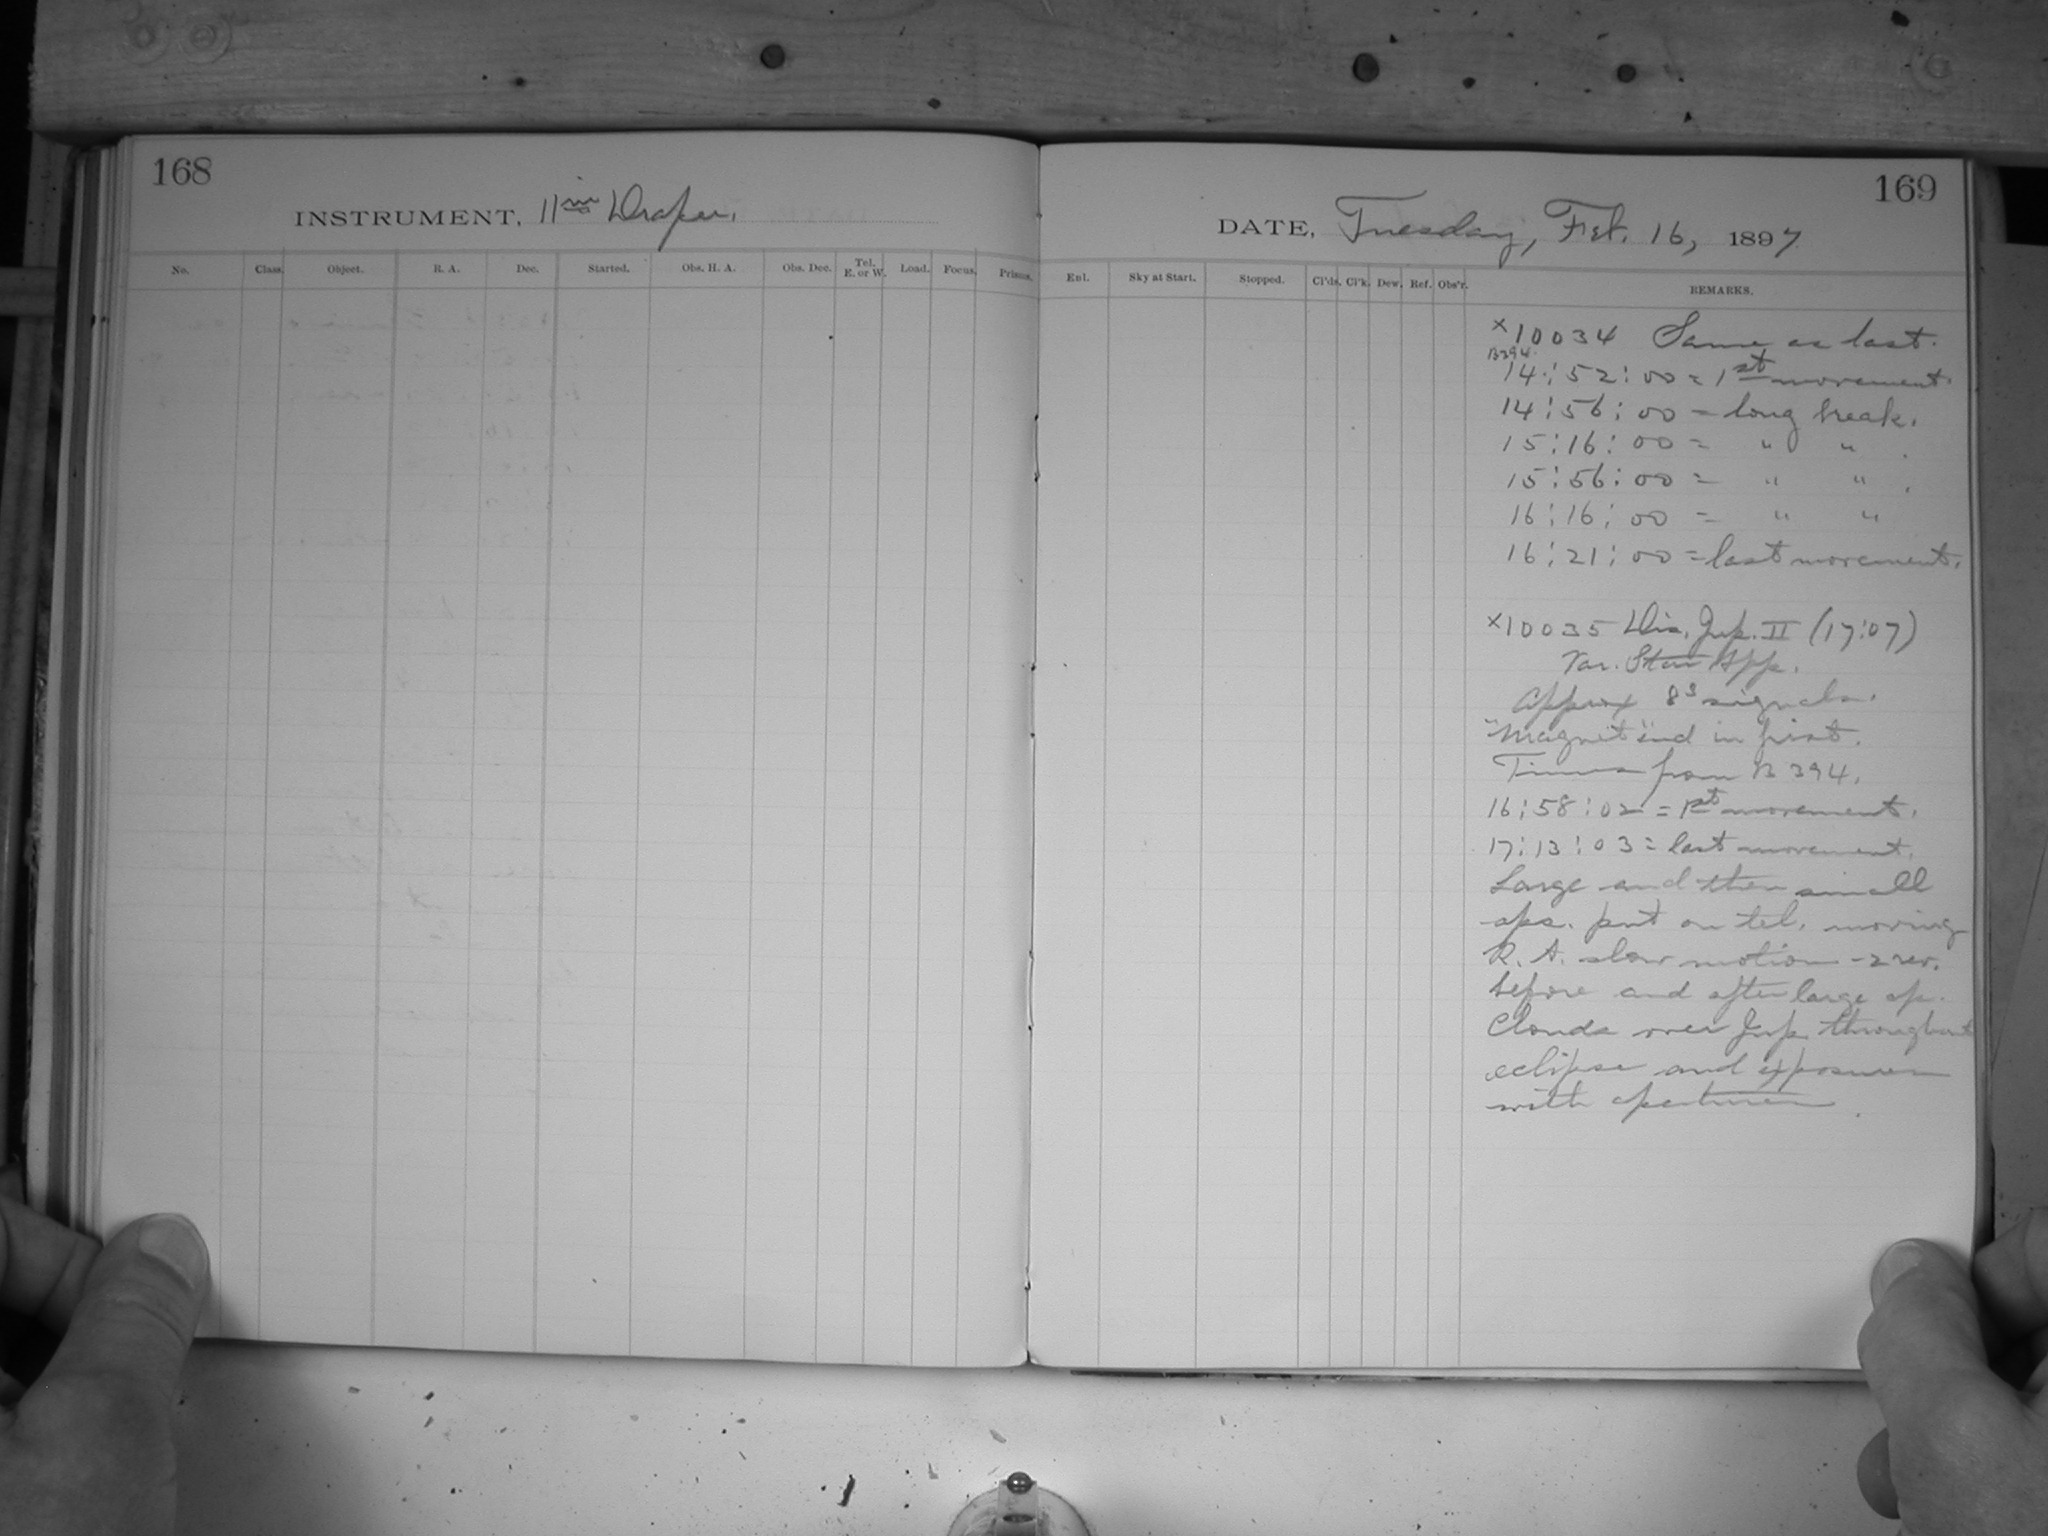 168
INSTRUMENT, 11 in Draper.
No. Class. Object. R. A. Dec. Started. Obs. H. A. Obs. Dec. Tel. E. or W. Load. Focus. Prisms.
169
DATE, Tuesday, Feb. 16, 1897
Enl. Sky at Start. Stopped. Cl'ds. Cl'k. Dew. Ref. Obs'r. REMARKS.
x10034 Same as last.
B394.
14:52:00 = 1st movement.
14:56:00 = long break.
15:16:00 = " " .
15:56:00 = " " .
16:16:00 = " "
16:21:00 = last movement.
x10035 Dis. Jup. II (17:07)
Var. Star App.
Approx 8s signals.
"Magnet" end in first.
Times from B 394.
16:58:02 = 1st movement.
17:13:03 = last movement.
Large and then small
aps. put on tel. moving
R. A. slow motion - 2 rev.
before and after large ap.
Clouds over Jup. throughout
eclipse and exposures
with apertures.